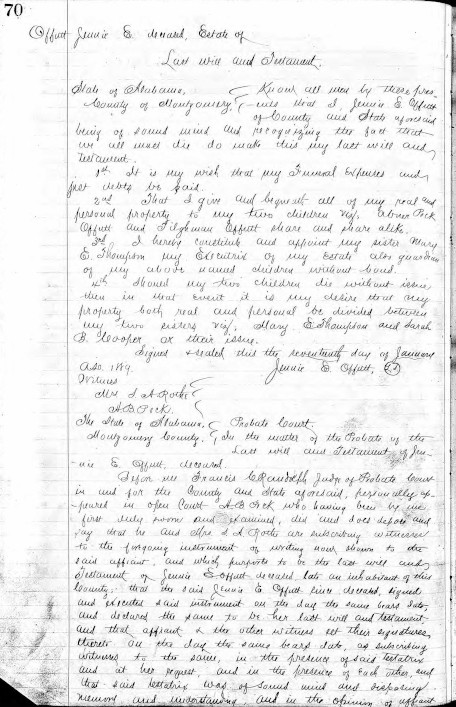 70
Offutt Jennie E. deceased, Estate of
Last will and Testament.
State of Alabama, Know all men by these pres-
County of Montgomery, ents that I, Jennie E Offutt
of County and State aforesaid
being of sound mind and recognizing the fact that
we all must die do make this my last will and
Testament.
1st It is my wish that my Funeral Expenses and
just debts be paid.
2nd That I give and bequeath all of my real and
personal property to my two children viz, Abner Peck
Offutt and Tilghman Offutt share and share alike.
3rd I hereby constitute and appoint my sister Mary
E. Thompson my Executrix of my Estate also guardian
of my above named children without bond.
4th Should my two children die without issue,
then in that event it is my desire that my
property both real and personal be divided between
my two sisters viz, Mary E Thompson and Sarah
B. Cooper or their issue.
Signed & sealed this the seventeenth day of January
A.D. 1889.
Jennie E Offutt,
Witness
A B Peck.
The State of Alabama, Probate Court.
Montgomery County, In the matter of the Probate of the
Last will and Testament of Jen-
nie E. Offutt, deceased.
Before me Francis C Randolph Judge of Probate Court
in and for the County and State aforesaid, personally ap-
peared in open Court A B Peck who having been by me
first duly sworn and examined, did and does depose and
say that he and Mrs are subscribing witnesses
to the foregoing instrument of writing now shown to the
said affiant, and which purports to be the last will and
Testament of Jennie E Offutt deceased, late an inhabitant of this
County; that the said Jennie E Offutt since deceased, signed
and executed said instrument on the day the same bears date,
and declared the same to be her last will and testament,
and that affiant & the other witness set their signatures
thereto on the day the same bears date, as subscribing
witnesses to the same, in the presence of said testatrix
and at her request and in the presence of each other, and
that said testatrix was of sound mind and disposing
memory and understanding and in the opinion of affiant